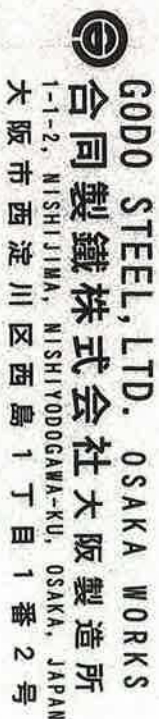 GODO STEEL, LTD. OSAKA WORKS
合同製鐵株式会社大阪製造所
1-1-2, NISHIJIMA, NISHIYODOGAWA-KU, OSAKA, JAPAN
大阪市西淀川区西島1丁目1番2号